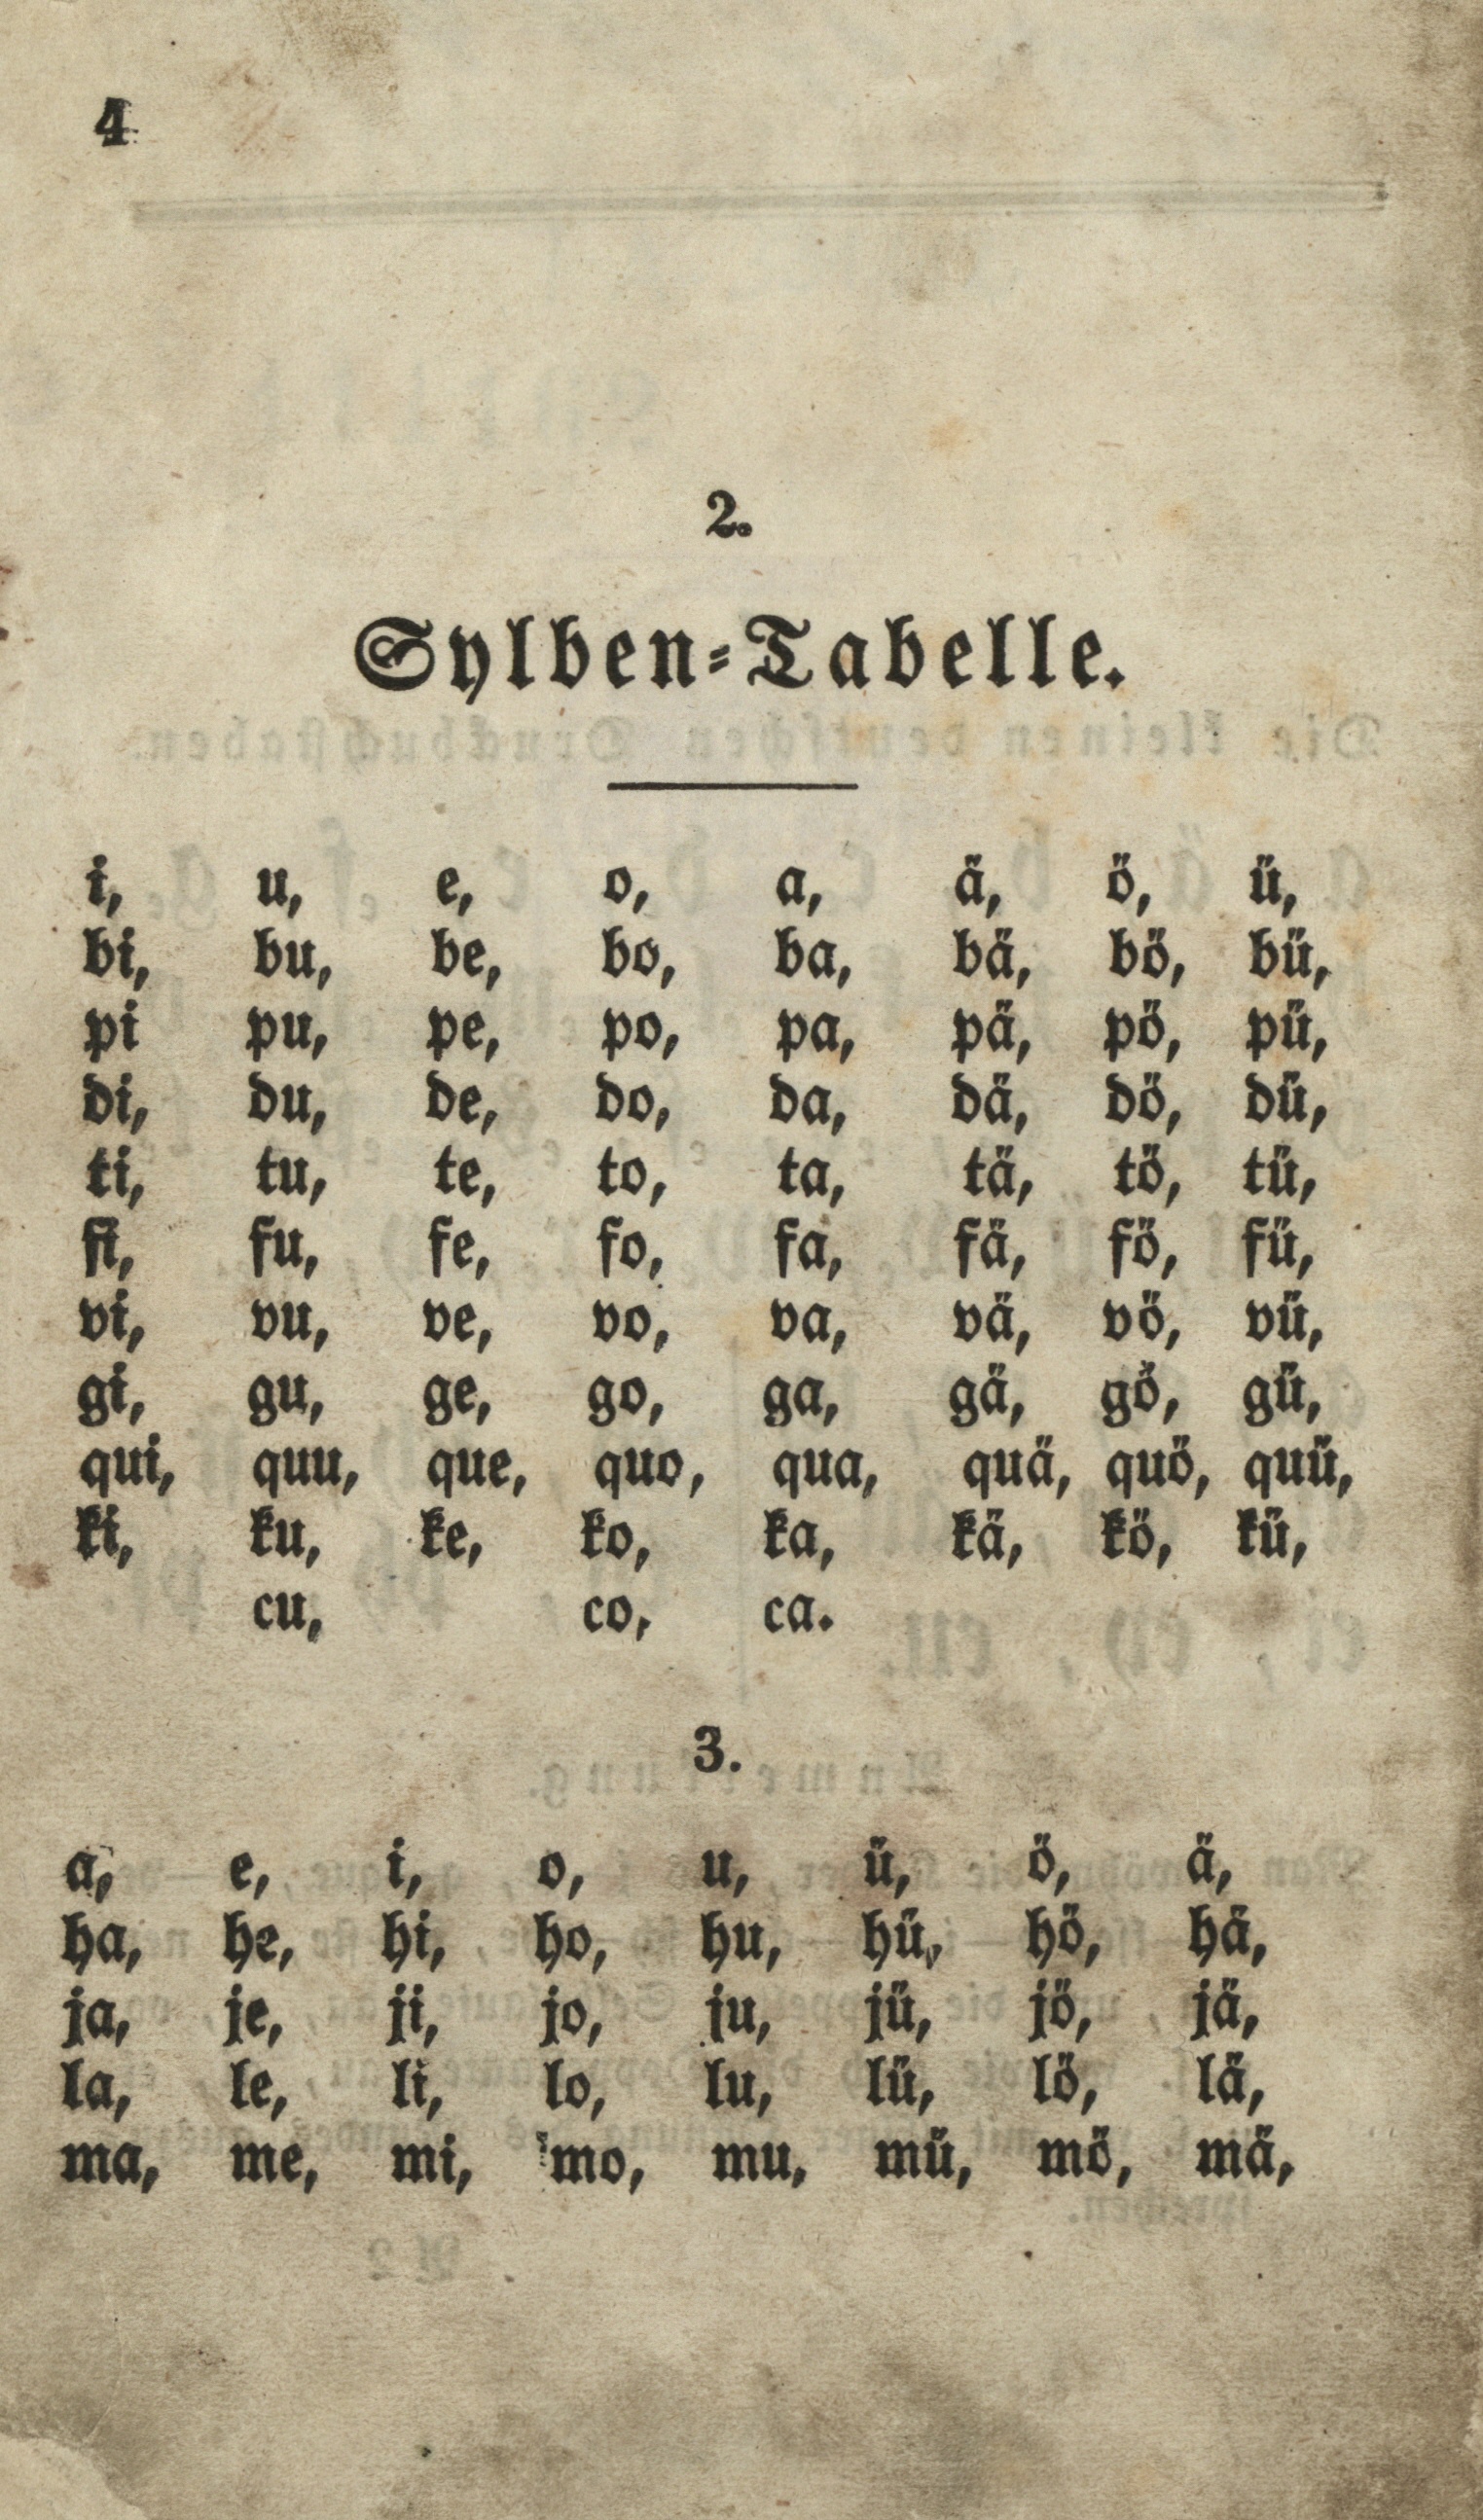 4
2.
Sylben-Tabelle.
i, u, e, o, a, ä, ö, ü,
bi, bu, be, bo, ba, bä, bö, bü,
pi pu, pe, po, pa, pä, pö, pü,
di, du, de, do, da, dä, dö, dü,
ti, tu, te, to, ta, tä, tö, tü,
fi, fu, fe, fo, fa, fä, fö, fü,
vi, vu, ve, vo, va, vä, vö, vü,
gi, gu, ge, go, ga, gä, gö, gü,
qui, quu, que, quo, qua, quä, quö, quü,
ki, ku, ke, ko, ka, kä, kö, kü,
cu, co, ca.
3.
a, e, i, o, u, ü, ö, ä,
ha, he, hi, ho, hu, hü, hö, hä,
ja, je, ji, jo, ju, jü, jö, jä,
la, le, li, lo, lu, lü, lö, lä,
ma, me, mi, mo, mu, mü, mö, mä,